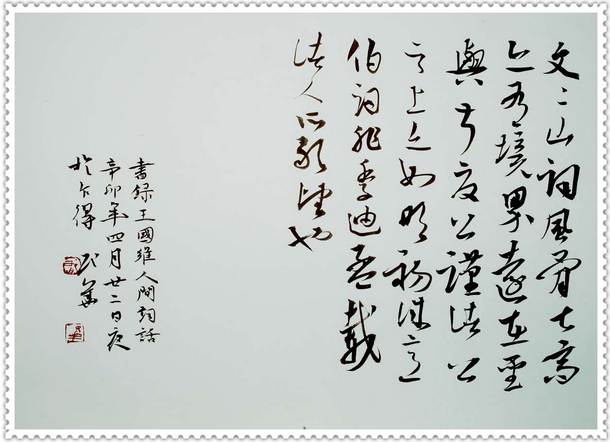 文〻山詞風骨甚高
亦有境界遠在聖
與叔夏公謹諸公
之上亦如明初誠意
伯詞非季迪孟載
諸人所敢望也
書録王國維人間詞話
辛卯年四月廿二日夜
於乍得